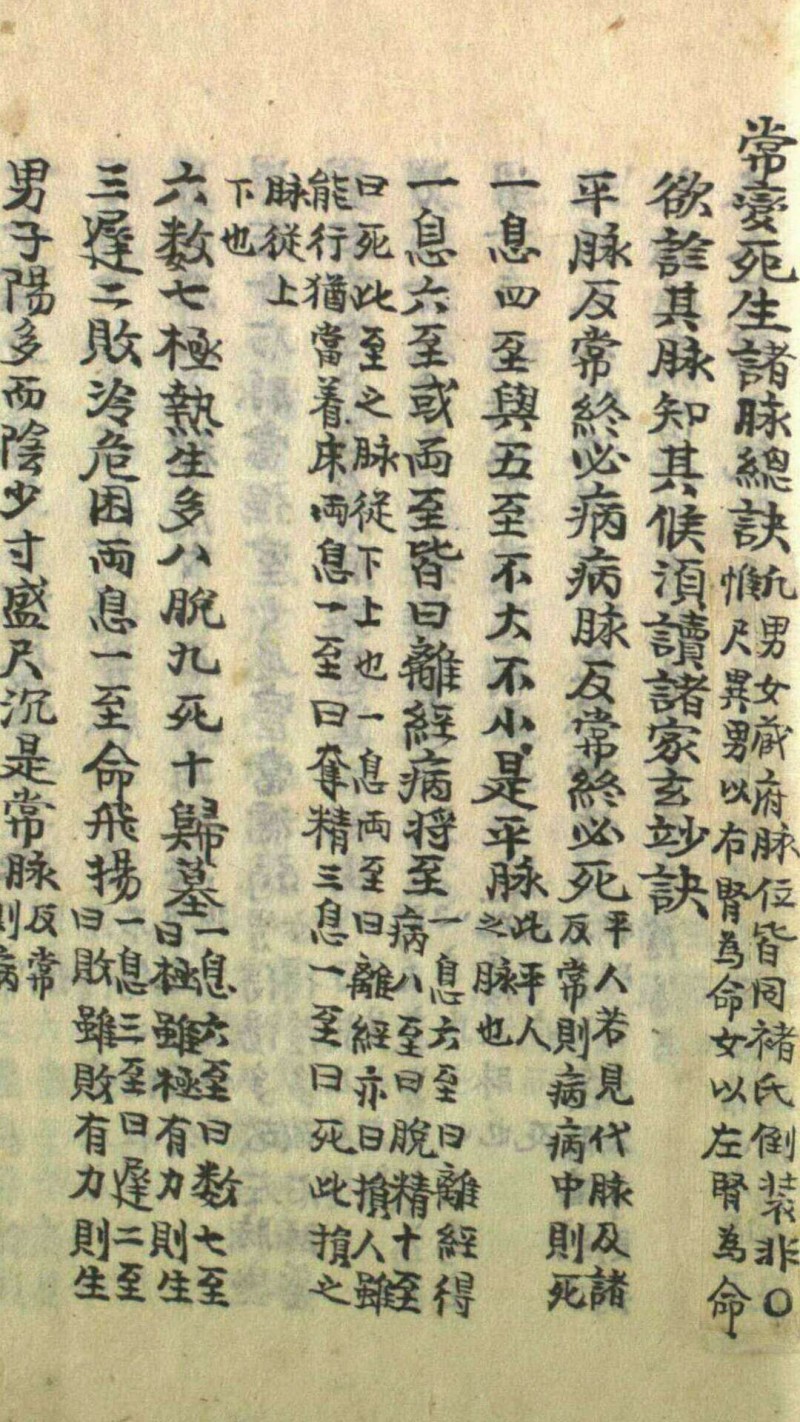 常變死生諸脉總訣
凡男女藏府脉位皆同褚氏倒装非○
惟尺異男以右腎為命女以左腎為命
欲診其脉知其候須讀諸家玄妙訣
平脉反常終必病病脉反常終必死
平人若見代脉及諸
反常則病病中則死
一息四至與五至不大不小是平脉
此平人
之脉也
一息六至或兩至皆曰離經病將至
一息六至曰離經得
病八至曰脫精十至
曰死此至之脉從下上也一息兩至曰離經亦曰損人雖
能行猶當着床兩息一至曰奪精三息一至曰死此損之
脉從上
下也
六数七極熱生多八脫九死十歸墓
一息六至曰数七至
曰極雖極有力則生
三遲二敗冷危困兩息一至命飛揚
一息三至曰遲二至
曰敗雖敗有力則生
男子陽多而陰少寸盛尺沉是常脉
反常
則病